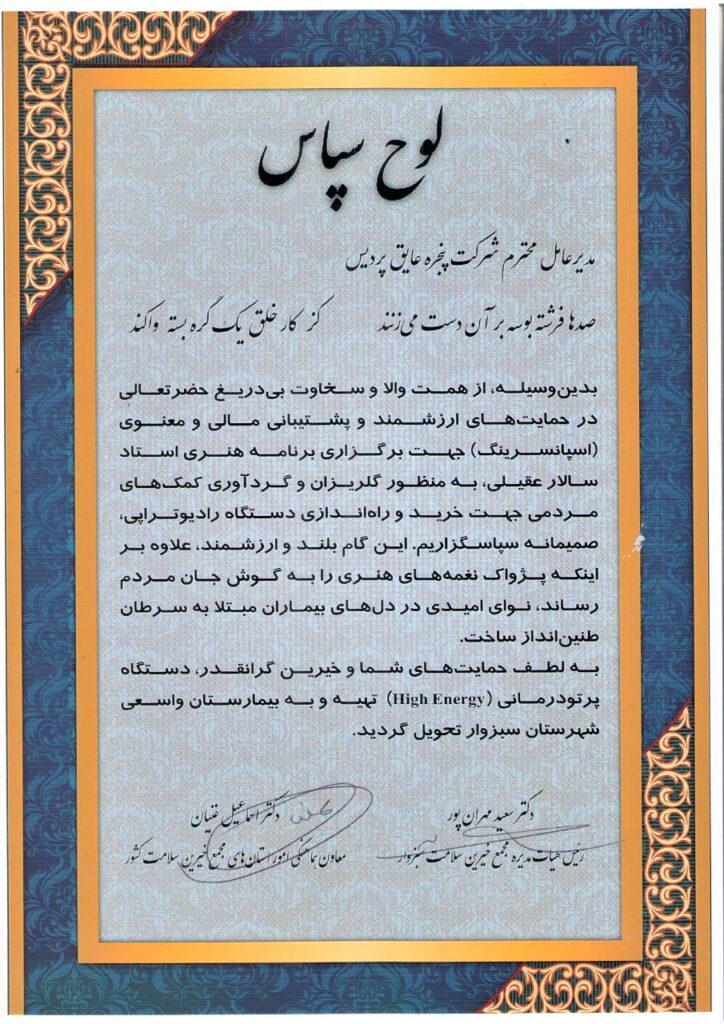 لوح سپاس
مدیرعامل محترم شرکت پنجره عایق پردیس
صدها فرشته بوسه بر آن دست می‌زنند کز کار خلق یک گره بسته واکند
بدین‌وسیله، از همت والا و سخاوت بی‌دریغ حضرتعالی
در حمایت‌های ارزشمند و پشتیبانی مالی و معنوی
(اسپانسرینگ) جهت برگزاری برنامه هنری استاد
سالار عقیلی، به منظور گلریزان و گردآوری کمک‌های
مردمی جهت خرید و راه‌اندازی دستگاه رادیوتراپی،
صمیمانه سپاسگزاریم. این گام بلند و ارزشمند، علاوه بر
اینکه پژواک نغمه‌های هنری را به گوش جان مردم
رساند، نوای امیدی در دل‌های بیماران مبتلا به سرطان
طنین‌انداز ساخت.
به لطف حمایت‌های شما و خیرین گرانقدر، دستگاه
پرتودرمانی (High Energy) تهیه و به بیمارستان واسعی
شهرستان سبزوار تحویل گردید.
دکتر سعید مهران پور
رئیس هیات مدیره مجمع خیرین سلامت سبزوار
دکتر اسماعیل غنیان
معاون هماهنگی امور استان‌های مجمع خیرین سلامت کشور